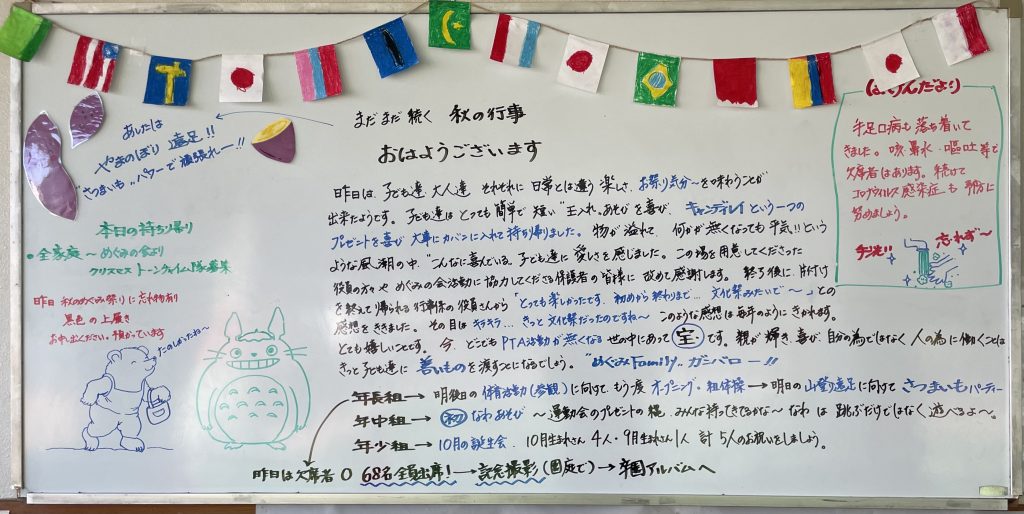 まだまだ続く 秋の行事
おはようございます
あしたは
やまのぼり遠足!!
"さつまいも"パワーで頑張れー!!
ほけんだより
手足口病も落ち着いて
きました。咳・鼻水・嘔吐等で
欠席者はあります。続けて
コロナウィルス感染症も予防に
努めましょう。
手洗い
忘れず〜
本日の持ち帰り
・全家庭〜めぐみの会より
クリスマス トーンチャイム隊募集
昨日 秋のめぐみ祭りに忘れ物有り
黒色の上履き
お申し出ください。預かっています
たのしかったね〜
昨日は、子ども達、大人達 それぞれに日常とは違う楽しさ、お祭り気分〜を味わうことが
出来たようです。子ども達は とっても簡単で短い"玉入れ"あそびを喜び、キャンディレイという一つの
プレゼントを喜び 大事にカバンに入れて持ち帰りました。物が溢れて、何かが無くなっても平気!!という
ような風潮の中、"こんなに喜んでいる"子ども達に愛しさを感じました。この場を用意してくださった
役員の方々や めぐみの会活動に協力してくださる保護者の皆様に 改めて感謝します。 終了後に、片付け
を終えて帰られる行事係の役員さんから「とっても楽しかったです。初めから終わりまで… 文化祭みたいで〜」との
感想をききました。その目はキラキラ…きっと文化祭だったのですね〜 このような感想は毎年のようにきかれます。
とても嬉しいことです。今、どこもPTA活動が無くなる世の中にあって 宝 です。親が輝き、喜び、自分の為ではなく人の為に働くことは
きっと子ども達に 善いものを渡すことになるでしょう。 "めぐみFamily"ガンバロー!!
年長組→ 明後日の体育活動(参観)に向けて、もう一度 オープニング・組体操→明日の山登り遠足に向けて さつまいもパーティー
年中組→ 初 なわあそび 〜運動会のプレゼントの縄、みんな持ってきてるかな〜 なわは 跳ぶだけではなく遊べるよ〜。
年少組→ 10月の誕生会、10月生まれさん 4人・9月生まれさん1人 計5人のお祝いをしましょう。
昨日は欠席者 0 68名全員出席!→記念撮影(園庭で)→卒園アルバムへ